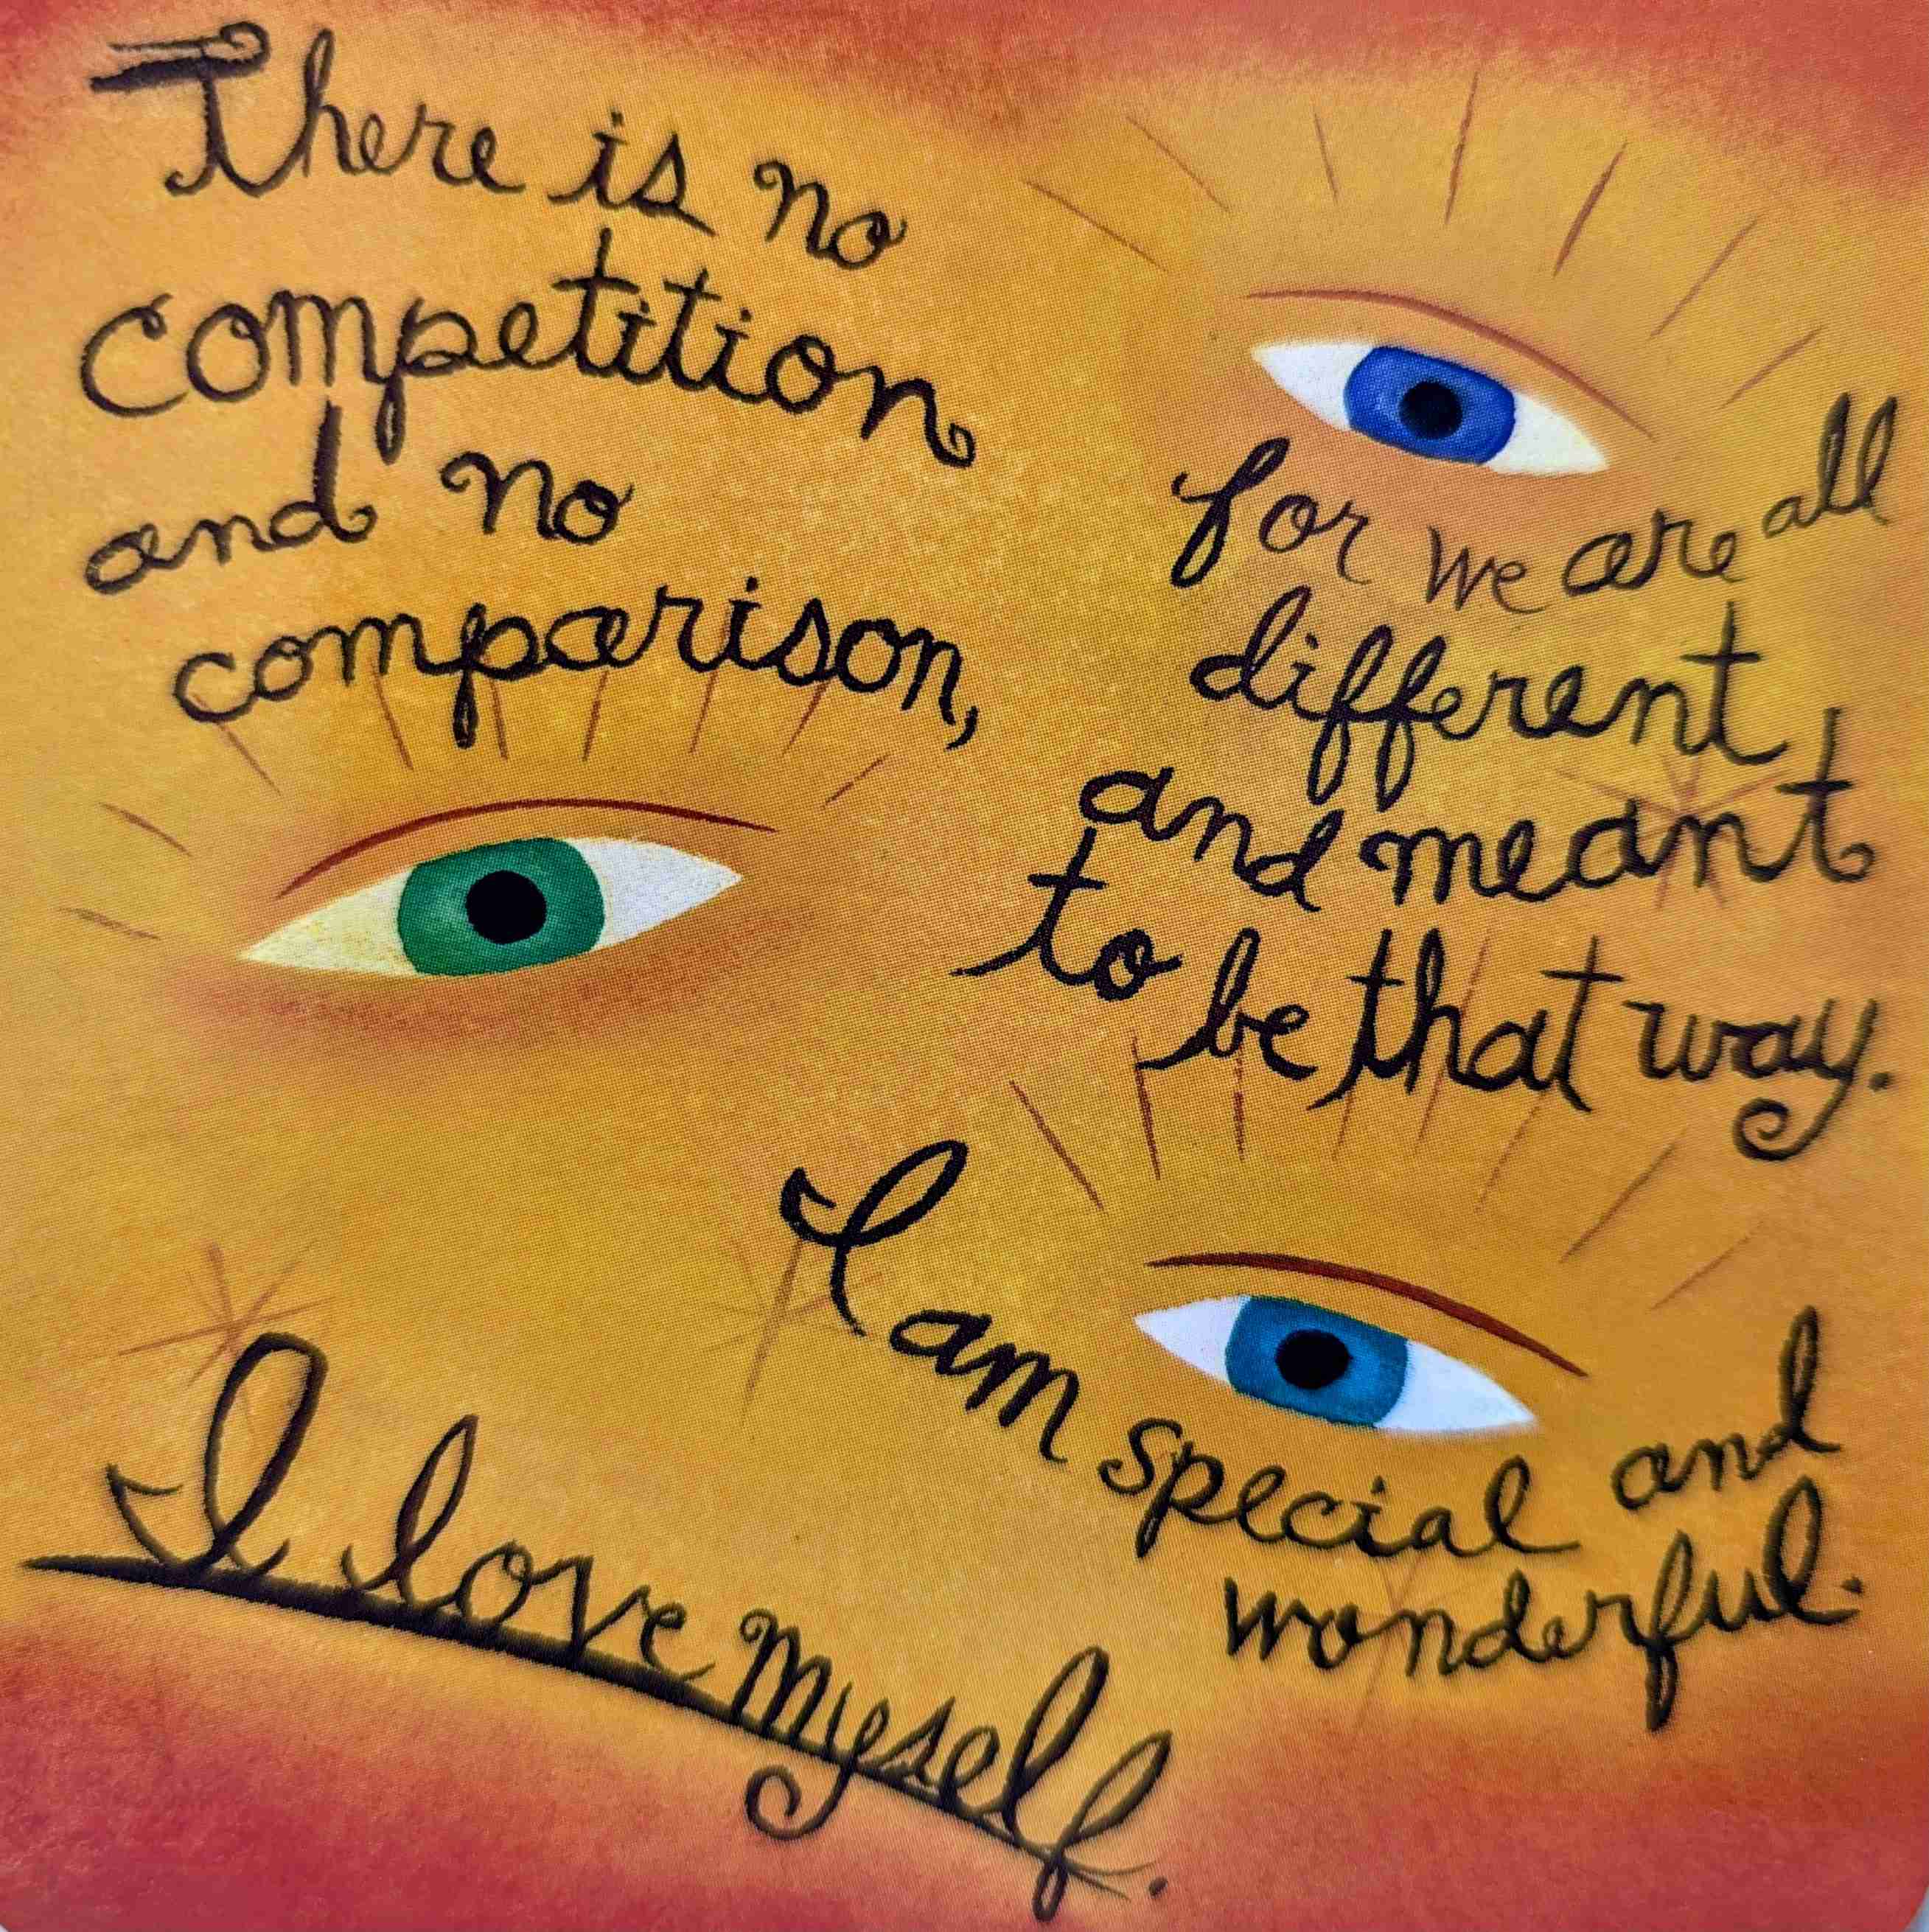 There is no
competition
and no
comparison,
for we are all
different
and meant
to be that way.
I am special and
wonderful.
I love myself.